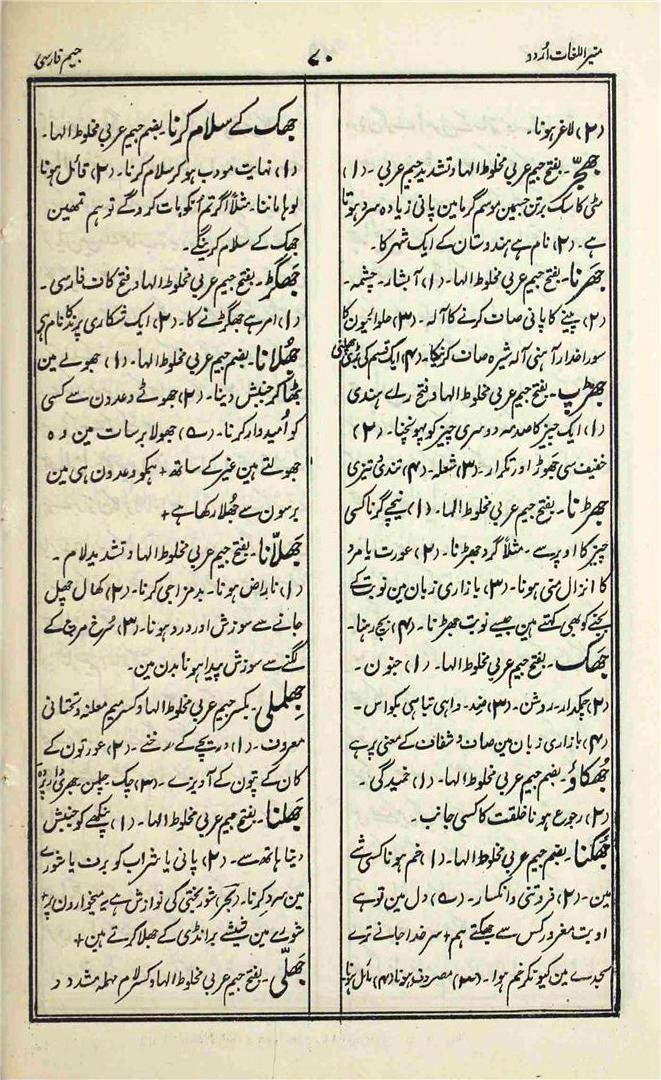 منیر اللغات اُردو
۷۰
جیم فارسی
(۲) لاغر ہونا۔
جھجّر۔ بفتح جیم عربی مخلوط الہا و تشدید جیم عربی۔ (۱)
مٹی کا سبک برتن جسمین موسم گرما مین پانی زیادہ سرد ہوتا
ہے۔ (۲) نام ہے ہندوستان کے ایک شہر کا۔
جھرنا۔ بفتح جیم عربی مخلوط الہا۔ (۱) آبشار۔ چشمہ۔
(۲) پینے کا پانی صاف کرنے کا آلہ۔ (۳) حلوائیون کا
سوراخدار آہنی آلہ شیرہ صاف کرنیکا۔ (۴) ایک قسم کی بڑی چھلنی
جھڑپ۔ بفتح جیم عربی مخلوط الہا و فتح راے ہندی
(۱) ایک چیز کا صدمہ دوسری چیز کو پہونچنا۔ (۲)
خفیف سی جھوڑ اور تکرار۔ (۳) شعلہ۔ (۴) تندی تیزی
جھڑنا۔ بفتح جیم عربی مخلوط الہا۔ (۱) نیچے گرنا کسی
چیز کا اوپر سے۔ مثلاً گرد جھڑنا۔ (۲) عورت یا مرد
کا انزال منی ہونا۔ (۳) بازاری زبان مین نوبت کے
بجنے کو بھی کہتے ہین جیسے نوبت جھڑنا۔ (۴) بچ رہنا۔
جھک۔ بفتح جیم عربی مخلوط الہا۔ (۱) جنون۔
(۲) چمکدار۔ روشن۔ (۳) ضد۔ واہی تباہی بکواس۔
(۴) بازاری زبان مین صاف و شفاف کے معنی پر ہے
جُھکاؤ۔ بضم جیم عربی مخلوط الہا۔ (۱) خمیدگی۔
(۲) رجوع ہونا خلقت کا کسی جانب۔
جُھکنا۔ بضم جیم عربی مخلوط الہا۔ (۱) خم ہونا کسی شے
مین۔ (۲) فروتنی و انکسار۔ (ے) دل مین تو ہے
او بت مغرور کس سے جھکتے ہم + سر خدا جانے ترے
سجدے مین کیونکر خم ہوا۔ (۳) مصروف ہونا (۴) مائل ہونا
جھک کے سلام کرنا۔ بضم جیم عربی مخلوط الہا۔
(۱) نہایت مودب ہو کر سلام کرنا۔ (۲) قائل ہونا
لوہا ماننا۔ مثلاً اگر تم آنکو بات کروگے تو ہم تمھین
جھک کے سلام کرینگے۔
جَھگڑ۔ بفتح جیم عربی مخلوط الہا و فتح کاف فارسی۔
(۱) امر ہے جھگڑنے کا۔ (۲) ایک شکاری پرند کا نام ہی
جُھلانا۔ بضم جیم عربی مخلوط الہا۔ (۱) جھولے مین
بٹھا کر جنبش دینا۔ (۲) جھوٹے وعدون سے کسی
کو اُمیدوار کرنا۔ (ے) جھولا برسات مین وہ
جھولتے ہین غیر کے ساتھ + ہمکو وعدون ہی مین
برسون سے جُھلا رکھا ہے +
جَھلّانا۔ بفتح جیم عربی مخلوط الہا و تشدید لام۔
(۱) ناراض ہونا۔ بدمزاجی کرنا۔ (۲) کھال چھل
جانے سے سوزش اور درد ہونا۔ (۳) سُرخ مرچ کے
لگنے سے سوزش پیدا ہونا بدن مین۔
جِھلملی۔ بکسر جیم عربی مخلوط الہا و کسر میم معلنہ و تحتانی
معروف۔ (۱) دریچے کے رخنے۔ (۲) عورتون کے
کان کے پتون کے آویزے۔ (۳) چک۔ چلمن۔ جھری دار پردہ
جَھلنا۔ بفتح جیم عربی مخلوط الہا۔ (۱) پنکھے کو جنبش
دینا ہاتھ سے۔ (۲) پانی یا شراب کو برف یا شورے
مین سرد کرنا۔ (بحر) شور بختی کی نوازش ہے یہ میخوارون پر +
شورے مین شیشے برانڈی کے جھلا کرتے ہین +
جھلّی۔ بفتح جیم عربی مخلوط الہا و کسر لام مہملہ مشدد و